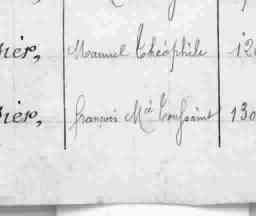 rier, Mamuel Théophile 120
rier, françois Mie Toussaint 130